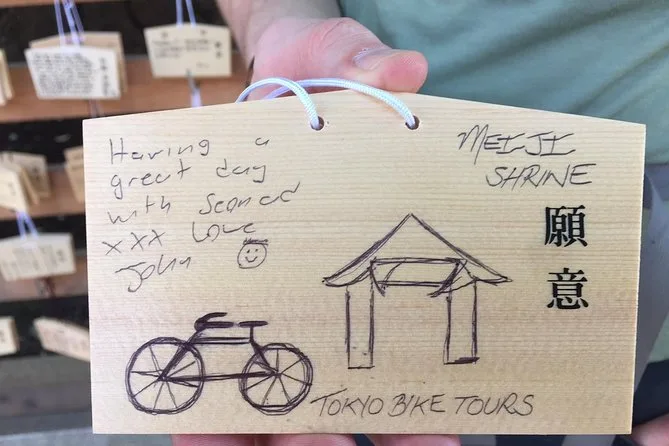 Having a
great day
with Seonad
xxx Love
John
MEIJI
SHRINE
願意
TOKYO BIKE TOURS